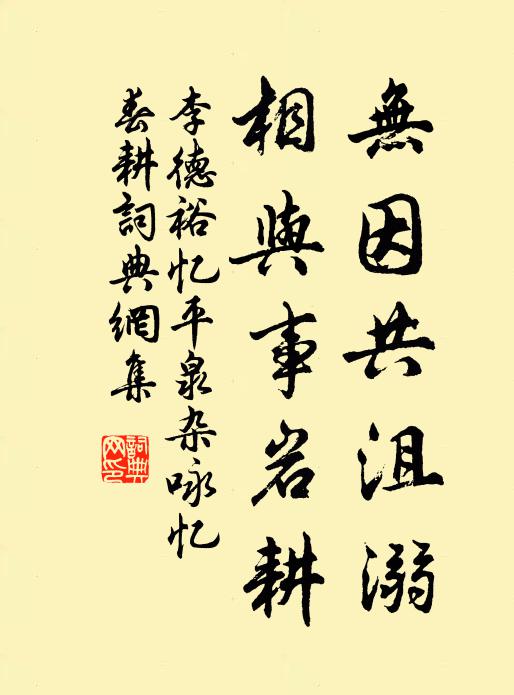 無因共沮溺
相與事岩耕
李德裕忆平泉杂咏忆
春耕詞典網集
詞典网印